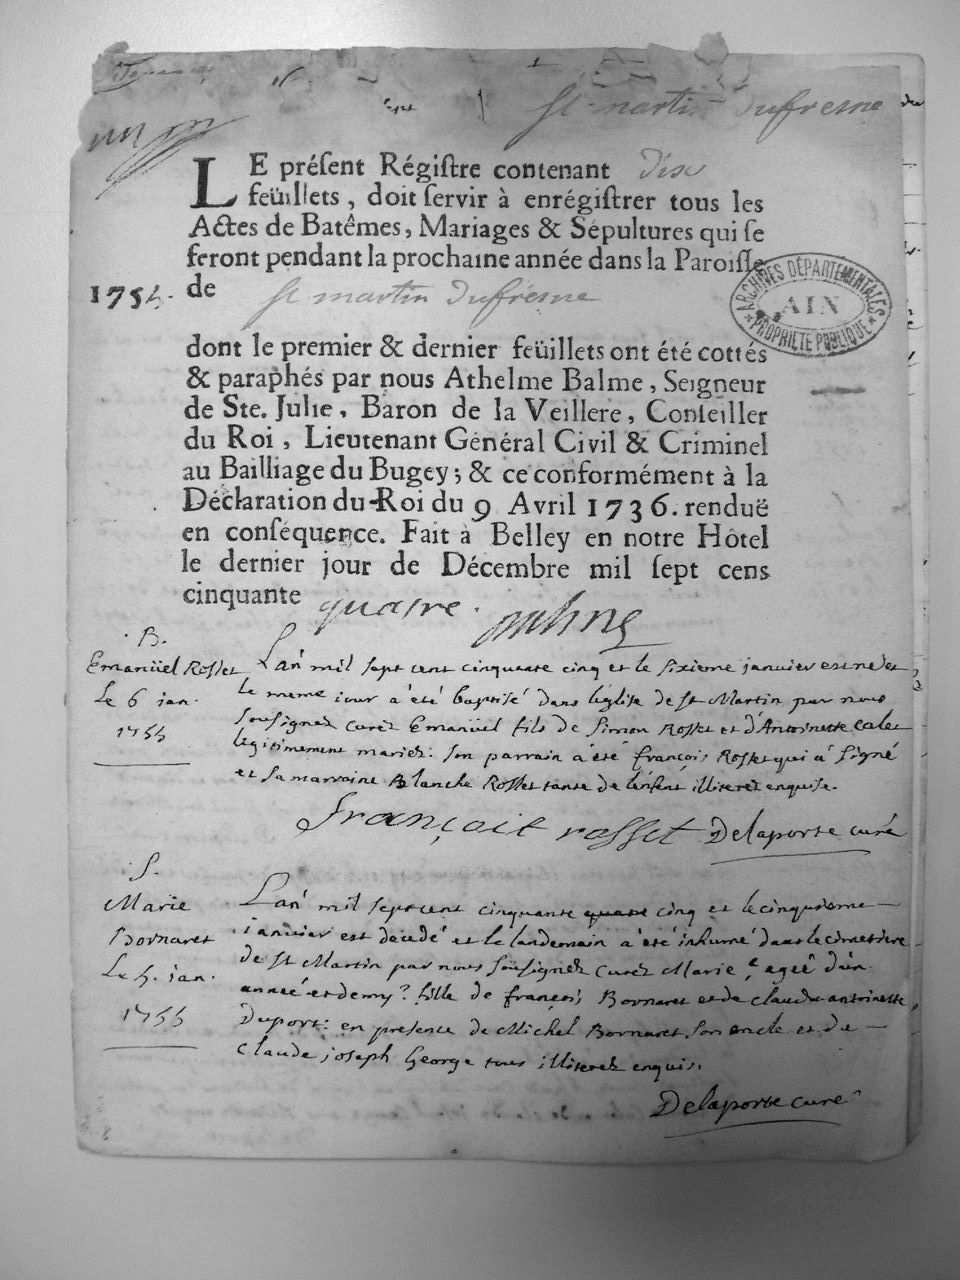 St martin Dufresne
LE préſent Régiſtre contenant Dix
feüillets, doit ſervir à enrégiſtrer tous les
Actes de Batêmes, Mariages & Sépultures qui ſe
feront pendant la prochaine année dans la Paroiſſe
1754. de St martin Dufresne
ARCHIVES DÉPARTEMENTALES
AIN
PROPRIÉTÉ PUBLIQUE
dont le premier & dernier feüillets ont été cottés
& paraphés par nous Athelme Balme, Seigneur
de Ste. Julie, Baron de la Veillere, Conſeiller
du Roi, Lieutenant Général Civil & Criminel
au Bailliage du Bugey; & ce conformément à la
Déclaration du Roi du 9 Avril 1736. renduë
en conſéquence. Fait à Belley en notre Hôtel
le dernier jour de Décembre mil ſept cens
cinquante quatre.
B.
Emanüel Rosset
Le 6 jan.
1755
L'an mil sept cent cinquante cinq et le sixieme janvier est né et
le meme jour a été baptisé dans l'église de St Martin par nous
soussignez curez Emanüel fils de Simon Rosset et d'Antoinette
legitimement mariez: son parrain a été françois Rosset qui a signé
et sa marraine Blanche Rosset tante de l'enfent illiterez enquise.
françoit rosset Delaporte curé
S.
Marie
Bornaret
Le 5. jan.
1755
L'an mil sept cent cinquante quatre cinq et le cinquieme
janvier est décédé et le landemain a été inhumé dans le cimetiere
de St Martin par nous soussignez curez Marie, agée d'un
année et demy fille de françois Bornaret et de claudu antoinette
Duport: en présence de Michel Bornaret son oncle et du
Claude joseph George tous illiterez enquis.
Delaporte curé